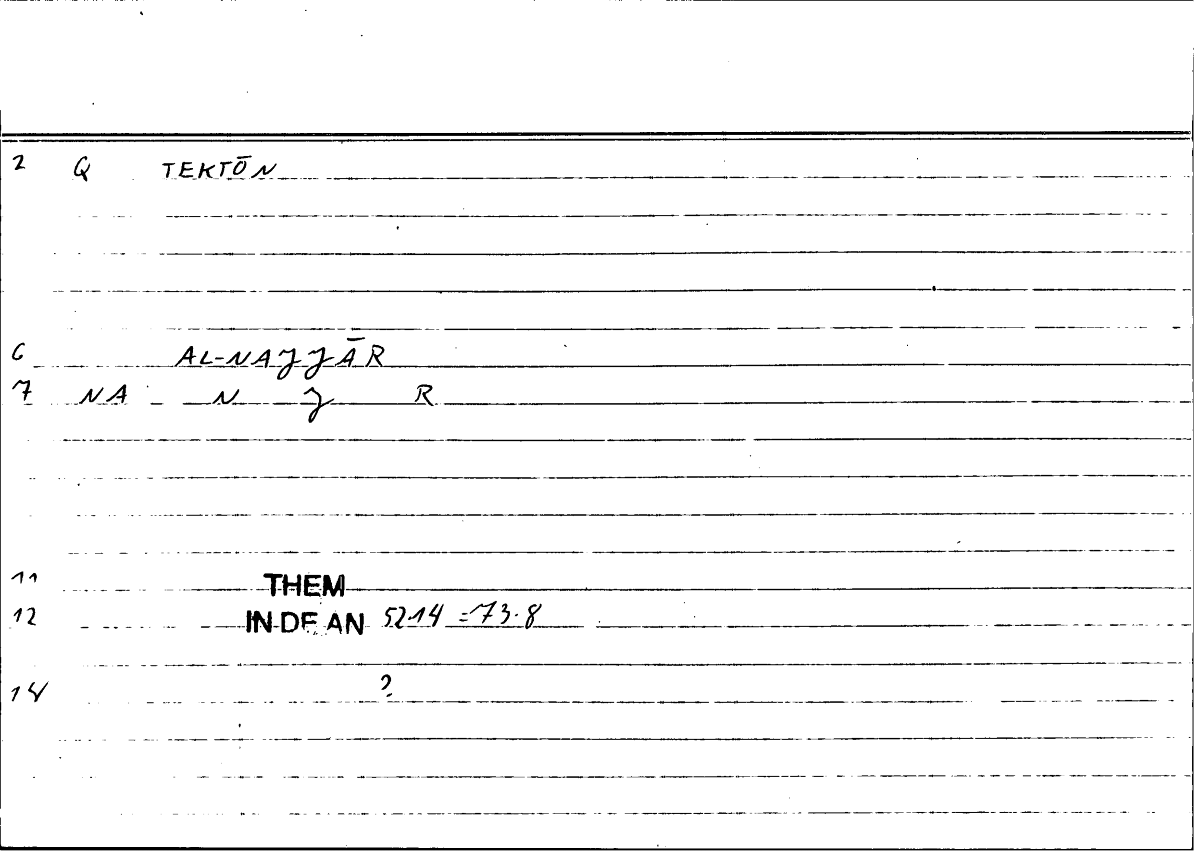 2 Q TEKTŌN
6 AL-NAJJĀR
7 NA N J R
11 THEM
12 IN DE AN 52.14 = 73.8
14 ?